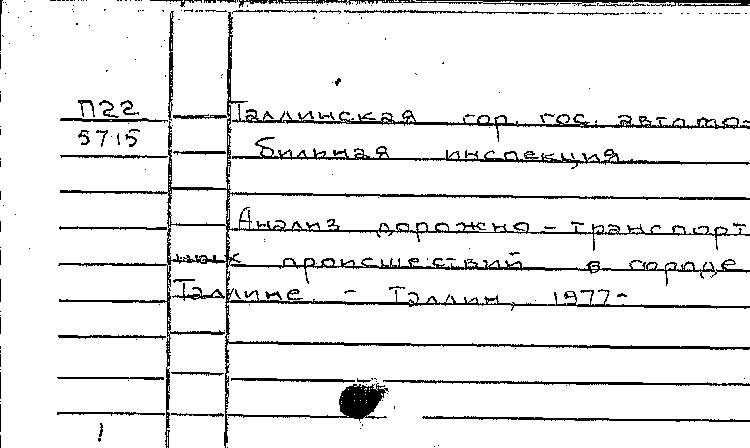 П22 Таллинская гор. гос. автомо-
5715 бильная инспекция
Анализ дорожно-транспорт
ных происшествий в городе
Таллине. - Таллин, 1977-
1